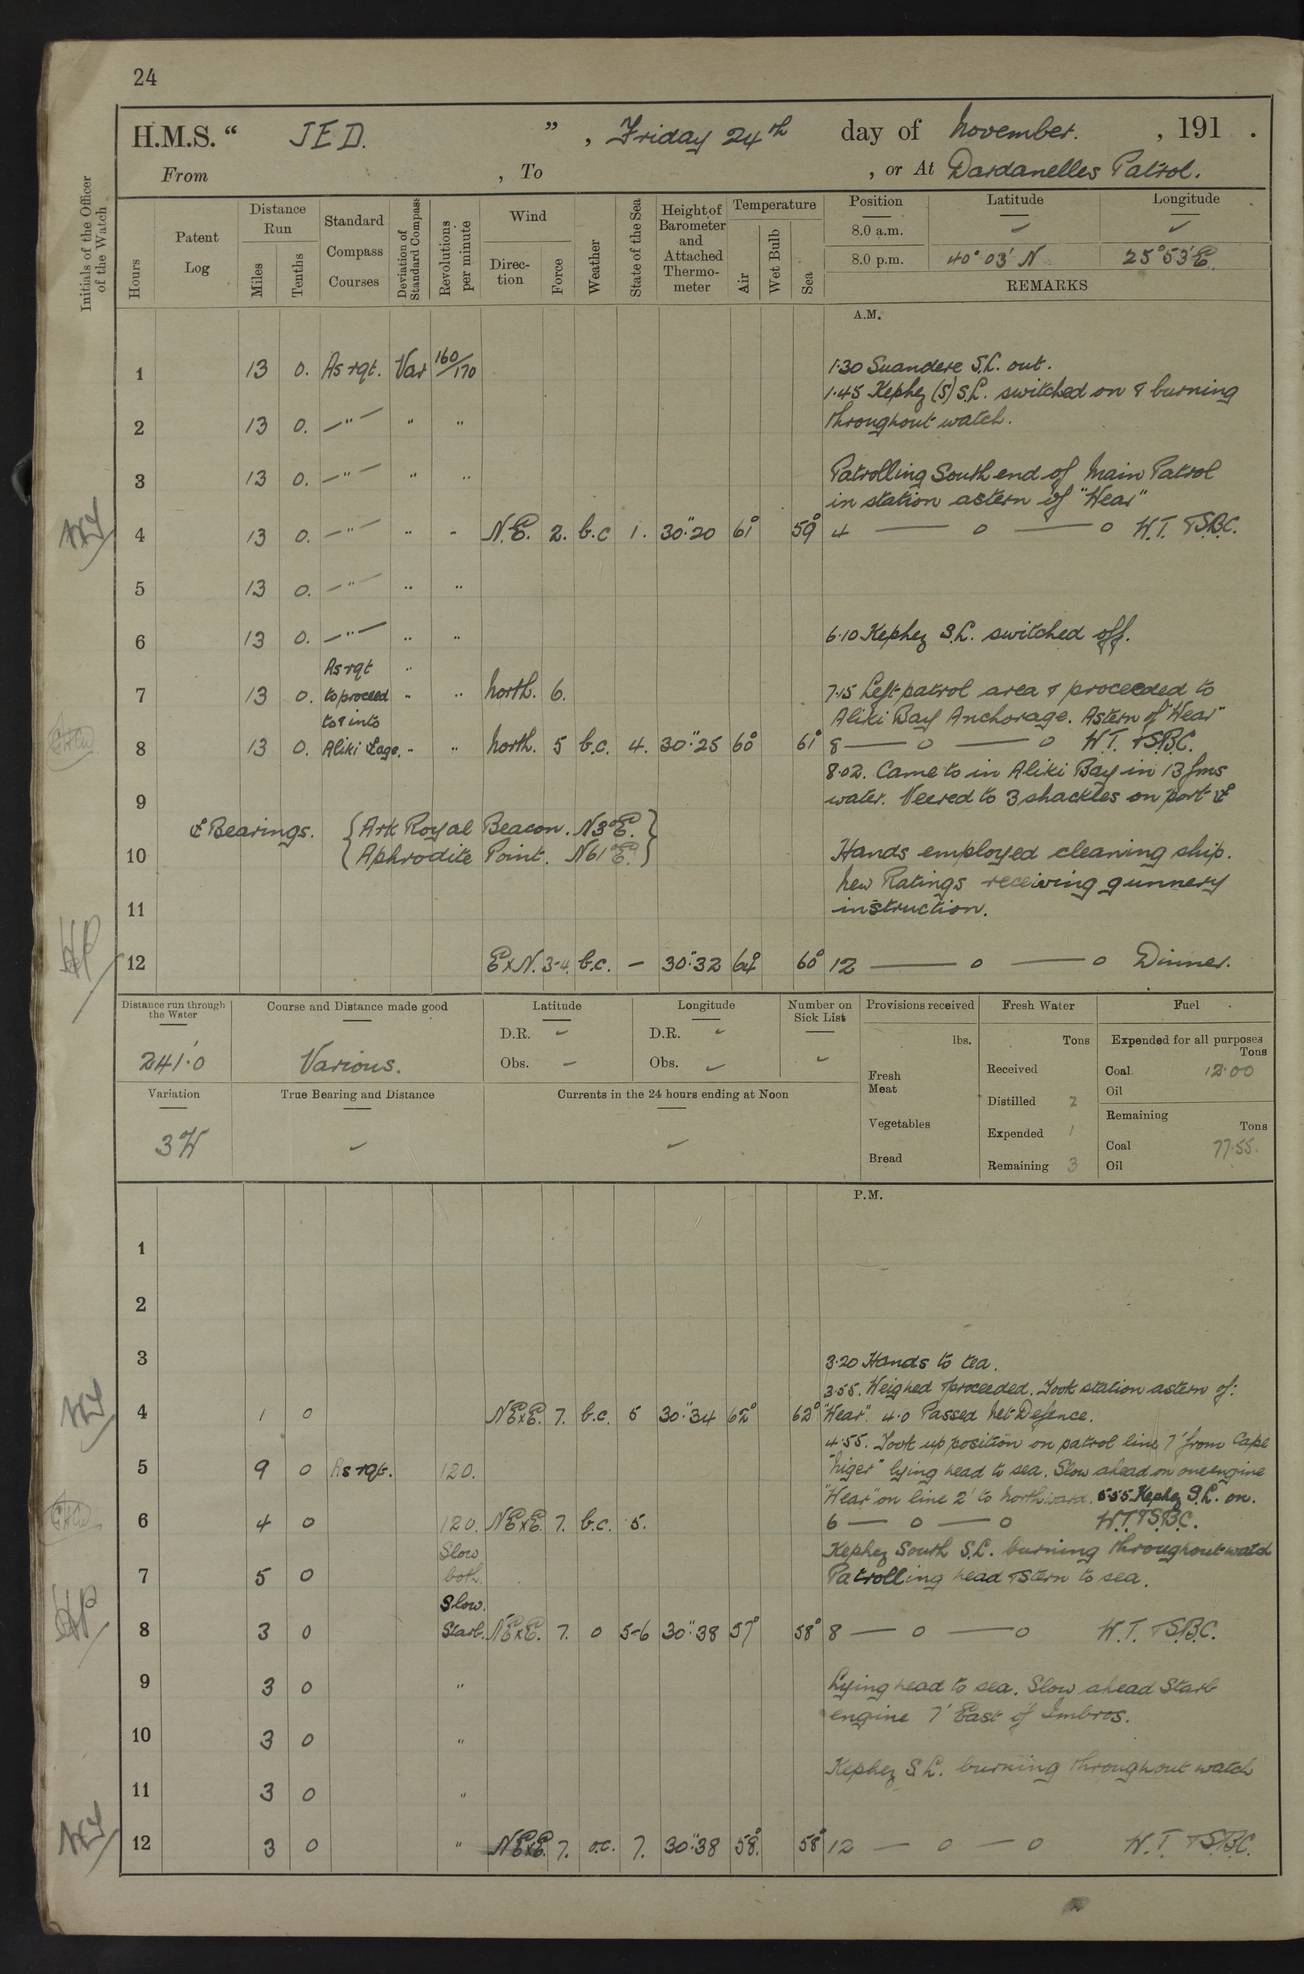 24
H.M.S. “ JED. ” , Friday 24th day of November. , 191 .
From , To , or At Dardanelles Patrol.
Initials of the Officer of the Watch
Hours
Patent Log
Distance Run
Miles
Tenths
Standard Compass Courses
Deviation of Standard Compass
Revolutions per minute
Wind
Direction
Force
Weather
State of the Sea
Height of Barometer and Attached Thermometer
Temperature
Air
Wet Bulb
Sea
Position Latitude Longitude
8.0 a.m. ✓ ✓
8.0 p.m. 40° 03' N 25° 53' E.
REMARKS
A.M.
1 13 0. As rqt. Var 160/170 1.30 Suandere S.L. out.
1.45 Kephez (S) S.L. switched on & burning
2 13 0. —"— " " throughout watch.
3 13 0. —"— " " Patrolling South end of Main Patrol
in station astern of "Wear"
4 13 0. —"— " - N.E. 2. b.c 1. 30".20 61° 59° 4 — o — o W.T. & S.B.C.
5 13 0. —"— " "
6 13 0. —"— " " 6.10 Kephez S.L. switched off.
As rqt "
7 13 0. to proceed " " North. 6. 7.15 Left patrol area & proceeded to
to & into Aliki Bay Anchorage. Astern of "Wear"
8 13 0. Aliki Lage. - " North. 5 b.c. 4. 30".25 60° 61° 8 — o — o W.T. & S.B.C.
8.02. Came to in Aliki Bay in 13 fms
9 water. Veered to 3 shackles on port ⚓
⚓ Bearings. { Ark Royal Beacon. N3°E. }
10 { Aphrodite Point. N61°E. } Hands employed cleaning ship.
New Ratings receiving gunnery
11 instruction.
12 ExN. 3-4. b.c. — 30".32 64° 60° 12 — o — o Dinner.
Distance run through the Water
241.0
Course and Distance made good
Various.
Latitude
D.R. ✓
Obs. —
Longitude
D.R. ✓
Obs. ✓
Number on Sick List
✓
Provisions received
lbs.
Fresh Meat
Vegetables
Bread
Fresh Water
Tons
Received
Distilled 2
Expended 1
Remaining 3
Fuel
Expended for all purposes
Tons
Coal 12.00
Oil
Remaining
Tons
Coal 77.55.
Oil
Variation
3W
True Bearing and Distance
✓
Currents in the 24 hours ending at Noon
✓
P.M.
1
2
3 3.20 Hands to tea.
3.55. Weighed & proceeded. Took station astern of:
4 1 0 NExE. 7. b.c. 5 30".34 62° 62° "Wear". 4.0 Passed Net Defence.
4.55. Took up position on patrol line 7' from Cape
5 9 0 As rqt. 120. "Niger" lying head to sea. Slow ahead on one engine
"Wear" on line 2' to northward. 5.55 Kephez S.L. on.
6 4 0 120. NExE. 7. b.c. 5. 6 — o — o W.T. & S.B.C.
Slow Kephez South S.L. burning throughout watch
7 5 0 both. Patrolling head & stern to sea.
Slow.
8 3 0 Starb. NExE. 7. o 5-6 30".38 57° 58° 8 — o — o W.T. & S.B.C.
9 3 0 " Lying head to sea. Slow ahead Starb
engine 7' East of Imbros.
10 3 0 "
Kephez S.L. burning throughout watch
11 3 0 "
12 3 0 " NExE. 7. o.c. 7. 30".38 58°. 58° 12 — o — o W.T. & S.B.C.